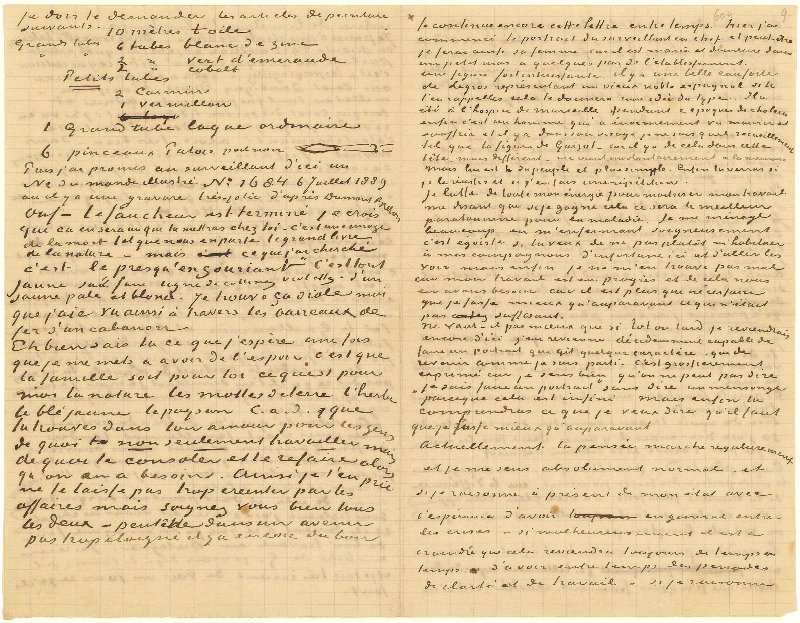 Je dois te demander les articles de peinture
suivants. 10 mètres toile
Grands tubes 6 tubes blanc de zinc
2 " vert d'emeraude
2 " cobalt
Petits tubes
2 Carmins
1 vermillon
1 Grand tube laque ordinaire
6 pinceaux Putois poil noir
Puis j'ai promis au surveillant d'ici un
No du monde illustré No 1684 6 Juillet 1889
où il y a une gravure très jolie d'après Demont Breton
Ouf - Le faucheur est terminé je crois
que ca en sera un que tu mettras chez toi - c'est une image
de la mort tel que nous en parle le grand livre
de la nature - mais ce que j'ai cherché
c'est le presqu'en souriant. C'est tout
jaune sauf une ligne de collines violettes - d'un
jaune pale et blond. Je trouve ça drole moi
que j'aie vu ainsi à travers les barreaux de
fer d'un cabanon -
Eh bien sais tu ce que j'espère une fois
que je me mets à avoir de l'espoir, c'est que
la famille soit pour toi ce qu'est pour
moi la nature les mottes de terre l'herbe
le blé jaune le paysan. C.a.d. que
tu trouves dans ton amour pour les gens
de quoi non seulement travailler mais
de quoi te consoler et te refaire alors
qu'on en a besoin. Ainsi je t'en prie
ne te laisse pas trop ereinter par les
affaires mais soignez vous bien tous
les deux - peutetre dans un avenir
pas trop eloigné il y a encore du bon
609 9
Je continue encore cette lettre entre temps. Hier j'ai
commencé le portrait du surveillant en chef et peut etre
je ferai aussi sa femme car il est marié et demeure dans
un petit mas à quelques pas de l'etablissement.
Une figure fort interessante. il y a une belle eau forte
de Legros représentant un vieux noble espagnol si tu
t'en rappelles cela te donnera une idée du type. Il a
été à l'hospice de marseille pendant 2 epoques de cholera
enfin c'est un homme qui a énormement vu mourir et
souffrir et il y a dans son visage je ne sais quel recueillement
tel que la figure de Guizot - car il y a de cela dans cette
tête mais different - me vient involontairement à la memoire
Mais lui est du peuple et plus simple. Enfin tu verras si
je le réussis et si j'en fais une répétition
Je lutte de toute mon énergie pour maitriser mon travail
me disant que si je gagne cela ce sera le meilleur
paratonnerre pour la maladie. Je me ménage
beaucoup en m'enfermant soigneusement
c'est egoiste si tu veux de ne pas plutôt m'habituer
à mes compagnons d'infortune ici et d'aller les
voir mais enfin je ne m'en trouve pas mal
car mon travail est en progrès et de cela nous
en avons besoin car il est plus que necessaire
que je fasse mieux qu'auparavant ce qui n'etait
pas suffisant.
ne vaut-il pas mieux que si tot ou tard je reviendrais
encore d'ici j'en revienne décidemment capable de
faire un portrait qui ait quelque caractère que de
revenir comme je suis parti. C'est grossierement
exprimé car je sens bien qu'on ne peut pas dire
"je sais faire un portrait" sans dire un mensonge
parceque cela est infini mais enfin tu
comprendras ce que je veux dire qu'il faut
que je fasse mieux qu'auparavant
Actuellement la pensée marche regulierement
et je me sens absolument normal. et
si je raisonne à présent de mon etat avec
l'espérance d'avoir en general entre
les crises - si malheureusement il est à
craindre que cela reviendra toujours de temps en
temps - d'avoir entre temps des periodes
de clarté et de travail - si je raisonne